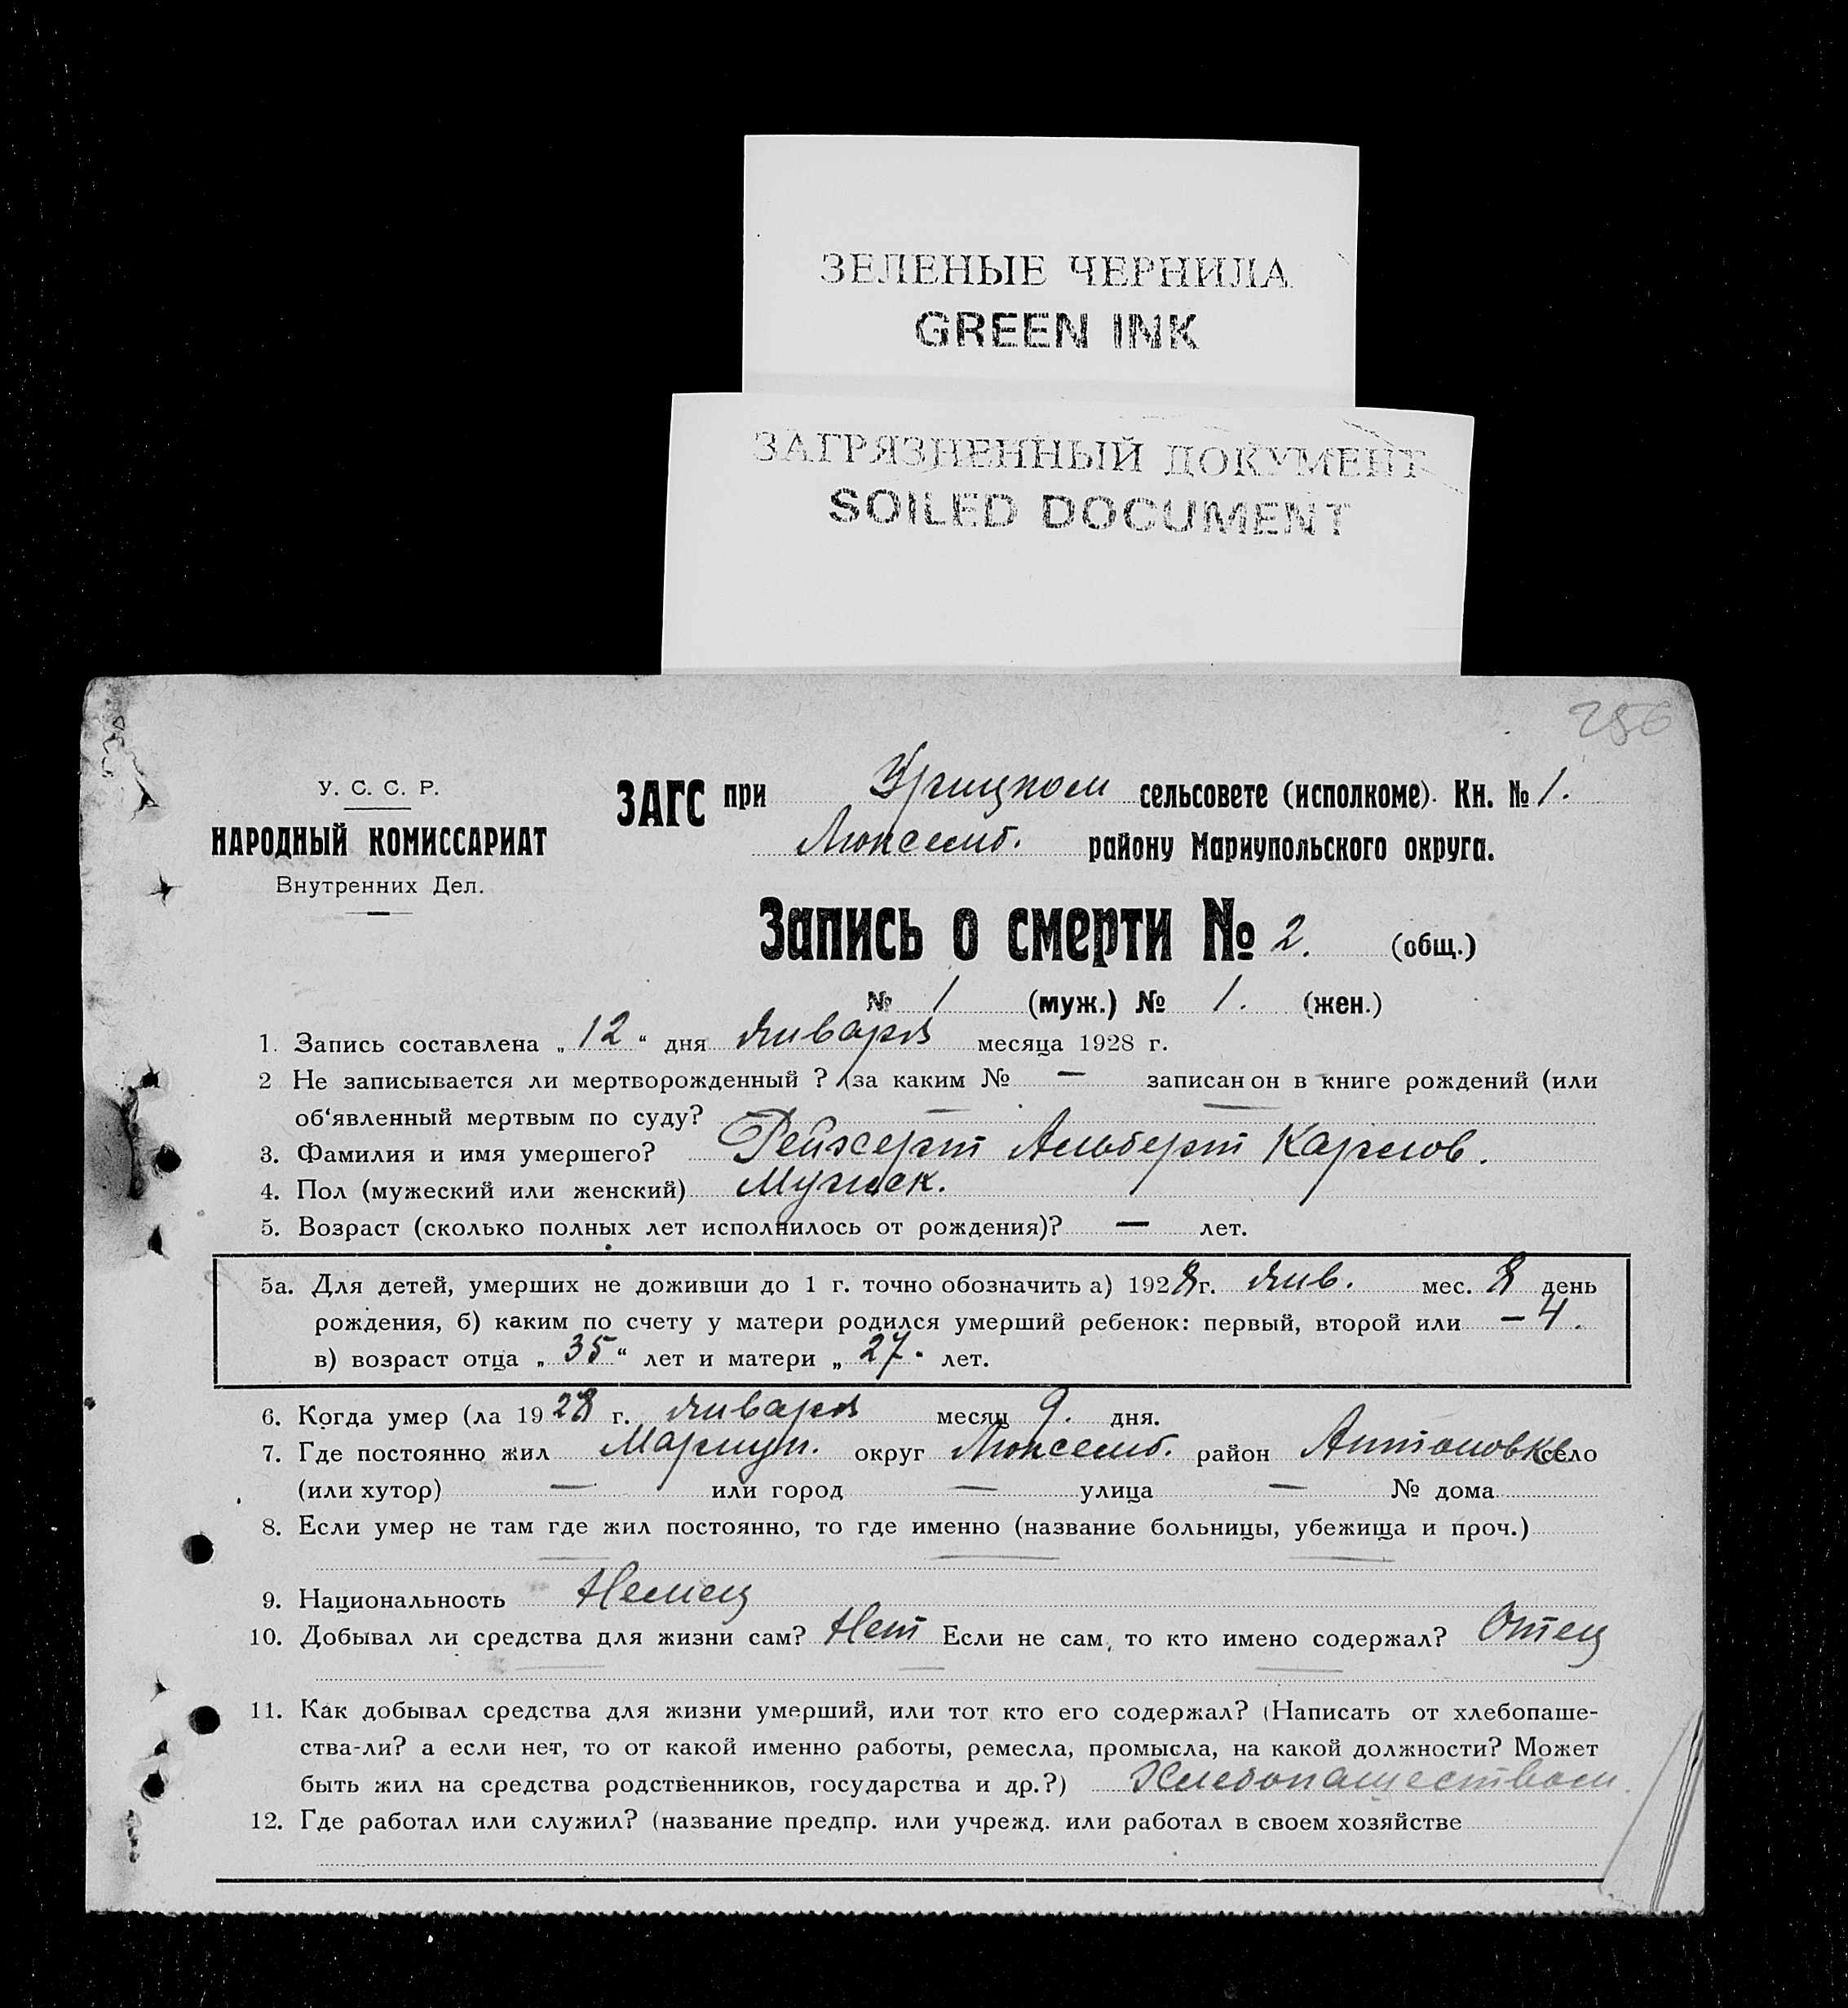 ЗЕЛЕНЫЕ ЧЕРНИЛА
GREEN INK
ЗАГРЯЗНЕННЫЙ ДОКУМЕНТ
SOILED DOCUMENT
256
У. С. С. Р.
НАРОДНЫЙ КОМИССАРИАТ
Внутренних Дел.
ЗАГС при Урицком сельсовете (исполкоме). Кн. № 1.
Люксемб. району Мариупольского округа.
Запись о смерти № 2. (общ.)
№ 1 (муж.) № 1. (жен.)
1. Запись составлена „12“ дня Января месяца 1928 г.
2 Не записывается ли мертворожденный ? (за каким № — записан он в книге рождений (или
об‘явленный мертвым по суду?
3. Фамилия и имя умершего? Рейхерт Альберт Карлов.
4. Пол (мужеский или женский) Мужск.
5. Возраст (сколько полных лет исполнилось от рождения)? — лет.
5а. Для детей, умерших не доживши до 1 г. точно обозначить а) 1928 г. Янв. мес. 8 день
рождения, б) каким по счету у матери родился умерший ребенок: первый, второй или — 4.
в) возраст отца „35“ лет и матери „27“ лет.
6. Когда умер (ла 1928 г. Января месяц 9. дня.
7. Где постоянно жил Мариуп. округ Люксемб. район Антоновка село
(или хутор) — или город — улица — № дома
8. Если умер не там где жил постоянно, то где именно (название больницы, убежища и проч.)
9. Национальность Немец
10. Добывал ли средства для жизни сам? Нет Если не сам, то кто имено содержал? Отец
11. Как добывал средства для жизни умерший, или тот кто его содержал? (Написать от хлебопаше-
ства-ли? а если нет, то от какой именно работы, ремесла, промысла, на какой должности? Может
быть жил на средства родственников, государства и др.?) Хлебопашеством.
12. Где работал или служил? (название предпр. или учрежд. или работал в своем хозяйстве